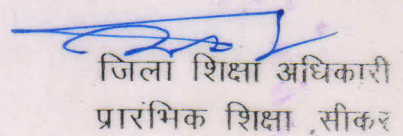 जिला शिक्षा अधिकारी
प्रारंभिक शिक्षा सीकर